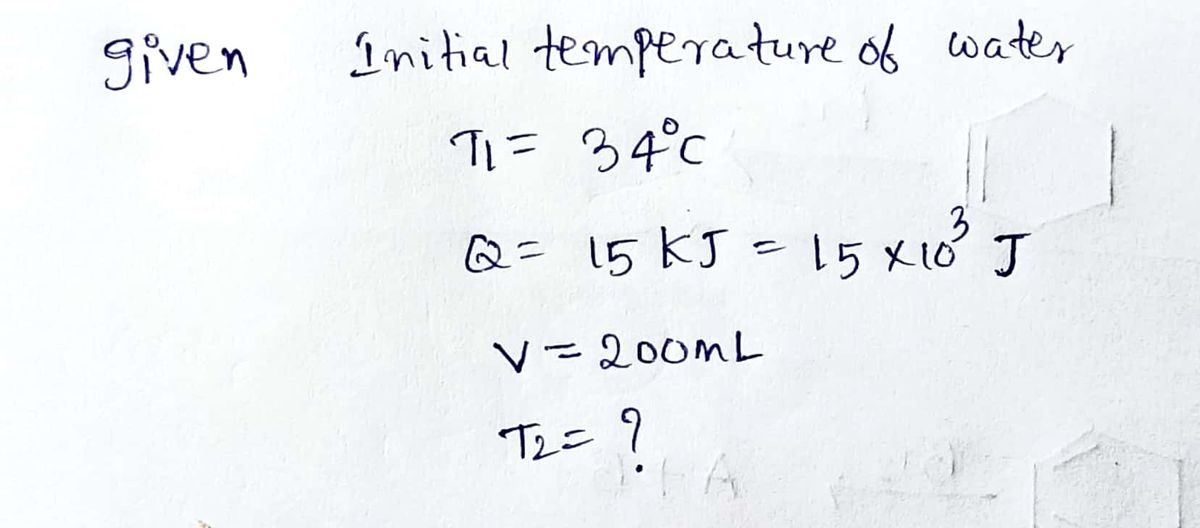 given Initial temperature of water
T1 = 34°C
Q = 15 KJ = 15 × 10³ J
V = 200mL
T2 = ?